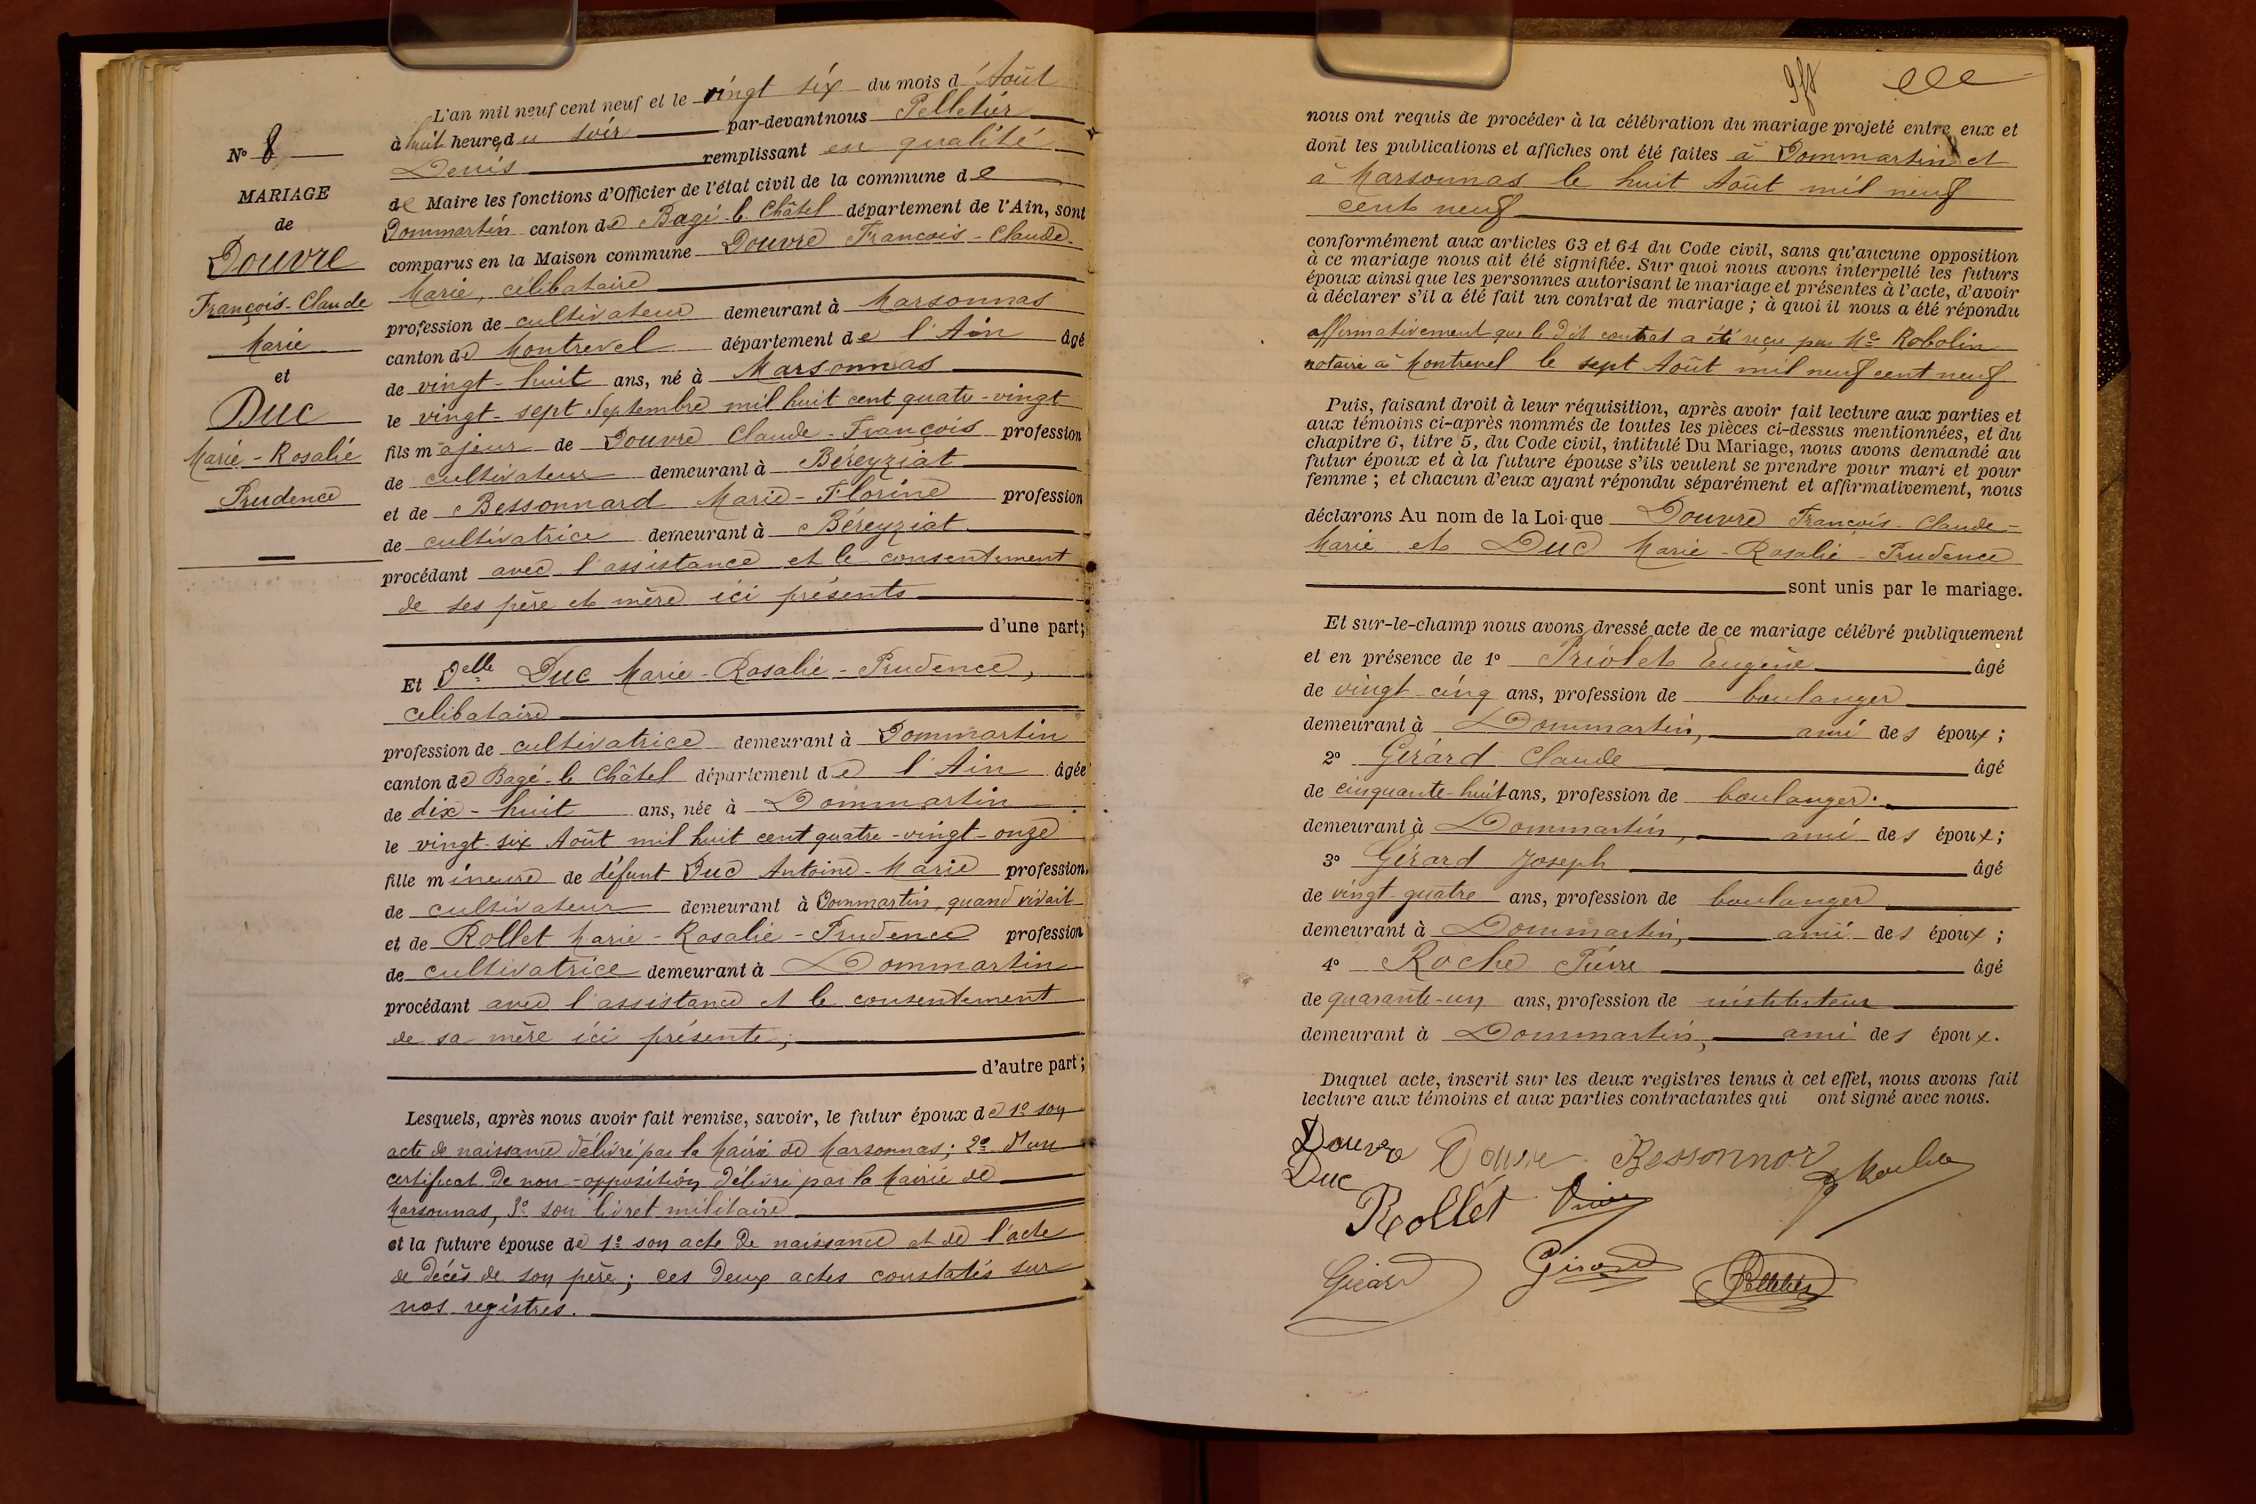 N° 8
MARIAGE
de
Douvre
François-Claude
Marie
et
Duc
Marie-Rosalie
Prudence
L'an mil neuf cent neuf et le vingt six du mois d'Août
à huit heures du soir par-devant nous Pelletier
Denis remplissant en qualité
de Maire les fonctions d'Officier de l'état civil de la commune de
Dommartin canton de Bagé-le-Châtel département de l'Ain, sont
comparus en la Maison commune Douvre François-Claude-
Marie, célibataire
profession de cultivateur demeurant à Marsonnas
canton de Montrevel département de l'Ain âgé
de vingt-huit ans, né à Marsonnas
le vingt-sept Septembre mil huit cent quatre-vingt
fils majeur de Douvre Claude-François profession
de cultivateur demeurant à Béreyziat
et de Bessonnard Marie-Florine profession
de cultivatrice demeurant à Béreyziat
procédant avec l'assistance et le consentement
de ses père et mère ici présents
d'une part;
Et Delle Duc Marie-Rosalie-Prudence,
célibataire
profession de cultivatrice demeurant à Dommartin
canton de Bagé-le-Châtel département de l'Ain âgée
de dix-huit ans, née à Dommartin
le vingt-six Août mil huit cent quatre-vingt-onze
fille mineure de défunt Duc Antoine-Marie profession
de cultivateur demeurant à Dommartin, quand vivait
et de Rollet Marie-Rosalie-Prudence profession
de cultivatrice demeurant à Dommartin
procédant avec l'assistance et le consentement
de sa mère ici présente;
d'autre part;
Lesquels, après nous avoir fait remise, savoir, le futur époux de 1° son
acte de naissance délivré par la Mairie de Marsonnas; 2° d'un
certificat de non-opposition délivré par la Mairie de
Marsonnas, 3° son livret militaire
et la future épouse de 1° son acte de naissance et de l'acte
de décès de son père; ces deux actes constatés sur
nos registres.
nous ont requis de procéder à la célébration du mariage projeté entre eux et
dont les publications et affiches ont été faites à Dommartin et
à Marsonnas le huit Août mil neuf
cent neuf
conformément aux articles 63 et 64 du Code civil, sans qu'aucune opposition
à ce mariage nous ait été signifiée. Sur quoi nous avons interpellé les futurs
époux ainsi que les personnes autorisant le mariage et présentes à l'acte, d'avoir
à déclarer s'il a été fait un contrat de mariage; à quoi il nous a été répondu
affirmativement que le dit contrat a été reçu par Me Robolin
notaire à Montrevel le sept Août mil neuf cent neuf
Puis, faisant droit à leur réquisition, après avoir fait lecture aux parties et
aux témoins ci-après nommés de toutes les pièces ci-dessus mentionnées, et du
chapitre 6, titre 5, du Code civil, intitulé Du Mariage, nous avons demandé au
futur époux et à la future épouse s'ils veulent se prendre pour mari et pour
femme; et chacun d'eux ayant répondu séparément et affirmativement, nous
déclarons Au nom de la Loi que Douvre François-Claude-
Marie et Duc Marie-Rosalie-Prudence
sont unis par le mariage.
Et sur-le-champ nous avons dressé acte de ce mariage célébré publiquement
et en présence de 1° Priolet Eugène âgé
de vingt-cinq ans, profession de boulanger
demeurant à Dommartin, ami des époux;
2° Gérard Claude âgé
de cinquante-huit ans, profession de boulanger.
demeurant à Dommartin, ami des époux;
3° Gérard Joseph âgé
de vingt-quatre ans, profession de boulanger
demeurant à Dommartin, ami des époux;
4° Roche Pierre âgé
de quarante-un ans, profession de instituteur
demeurant à Dommartin, ami des époux.
Duquel acte, inscrit sur les deux registres tenus à cet effet, nous avons fait
lecture aux témoins et aux parties contractantes qui ont signé avec nous.
Douvre Douvre Bessonnard
Duc
Rollet
Gérard Girard Pelletier